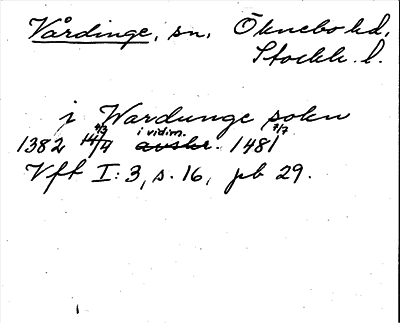 Vårdinge, sn, Öknebo hd,
Stockh. l.
j Wardunge sokn
1382 14/4 i vidim. avskr. 1481 7/7
Vff I:3, s. 16, pb 29.